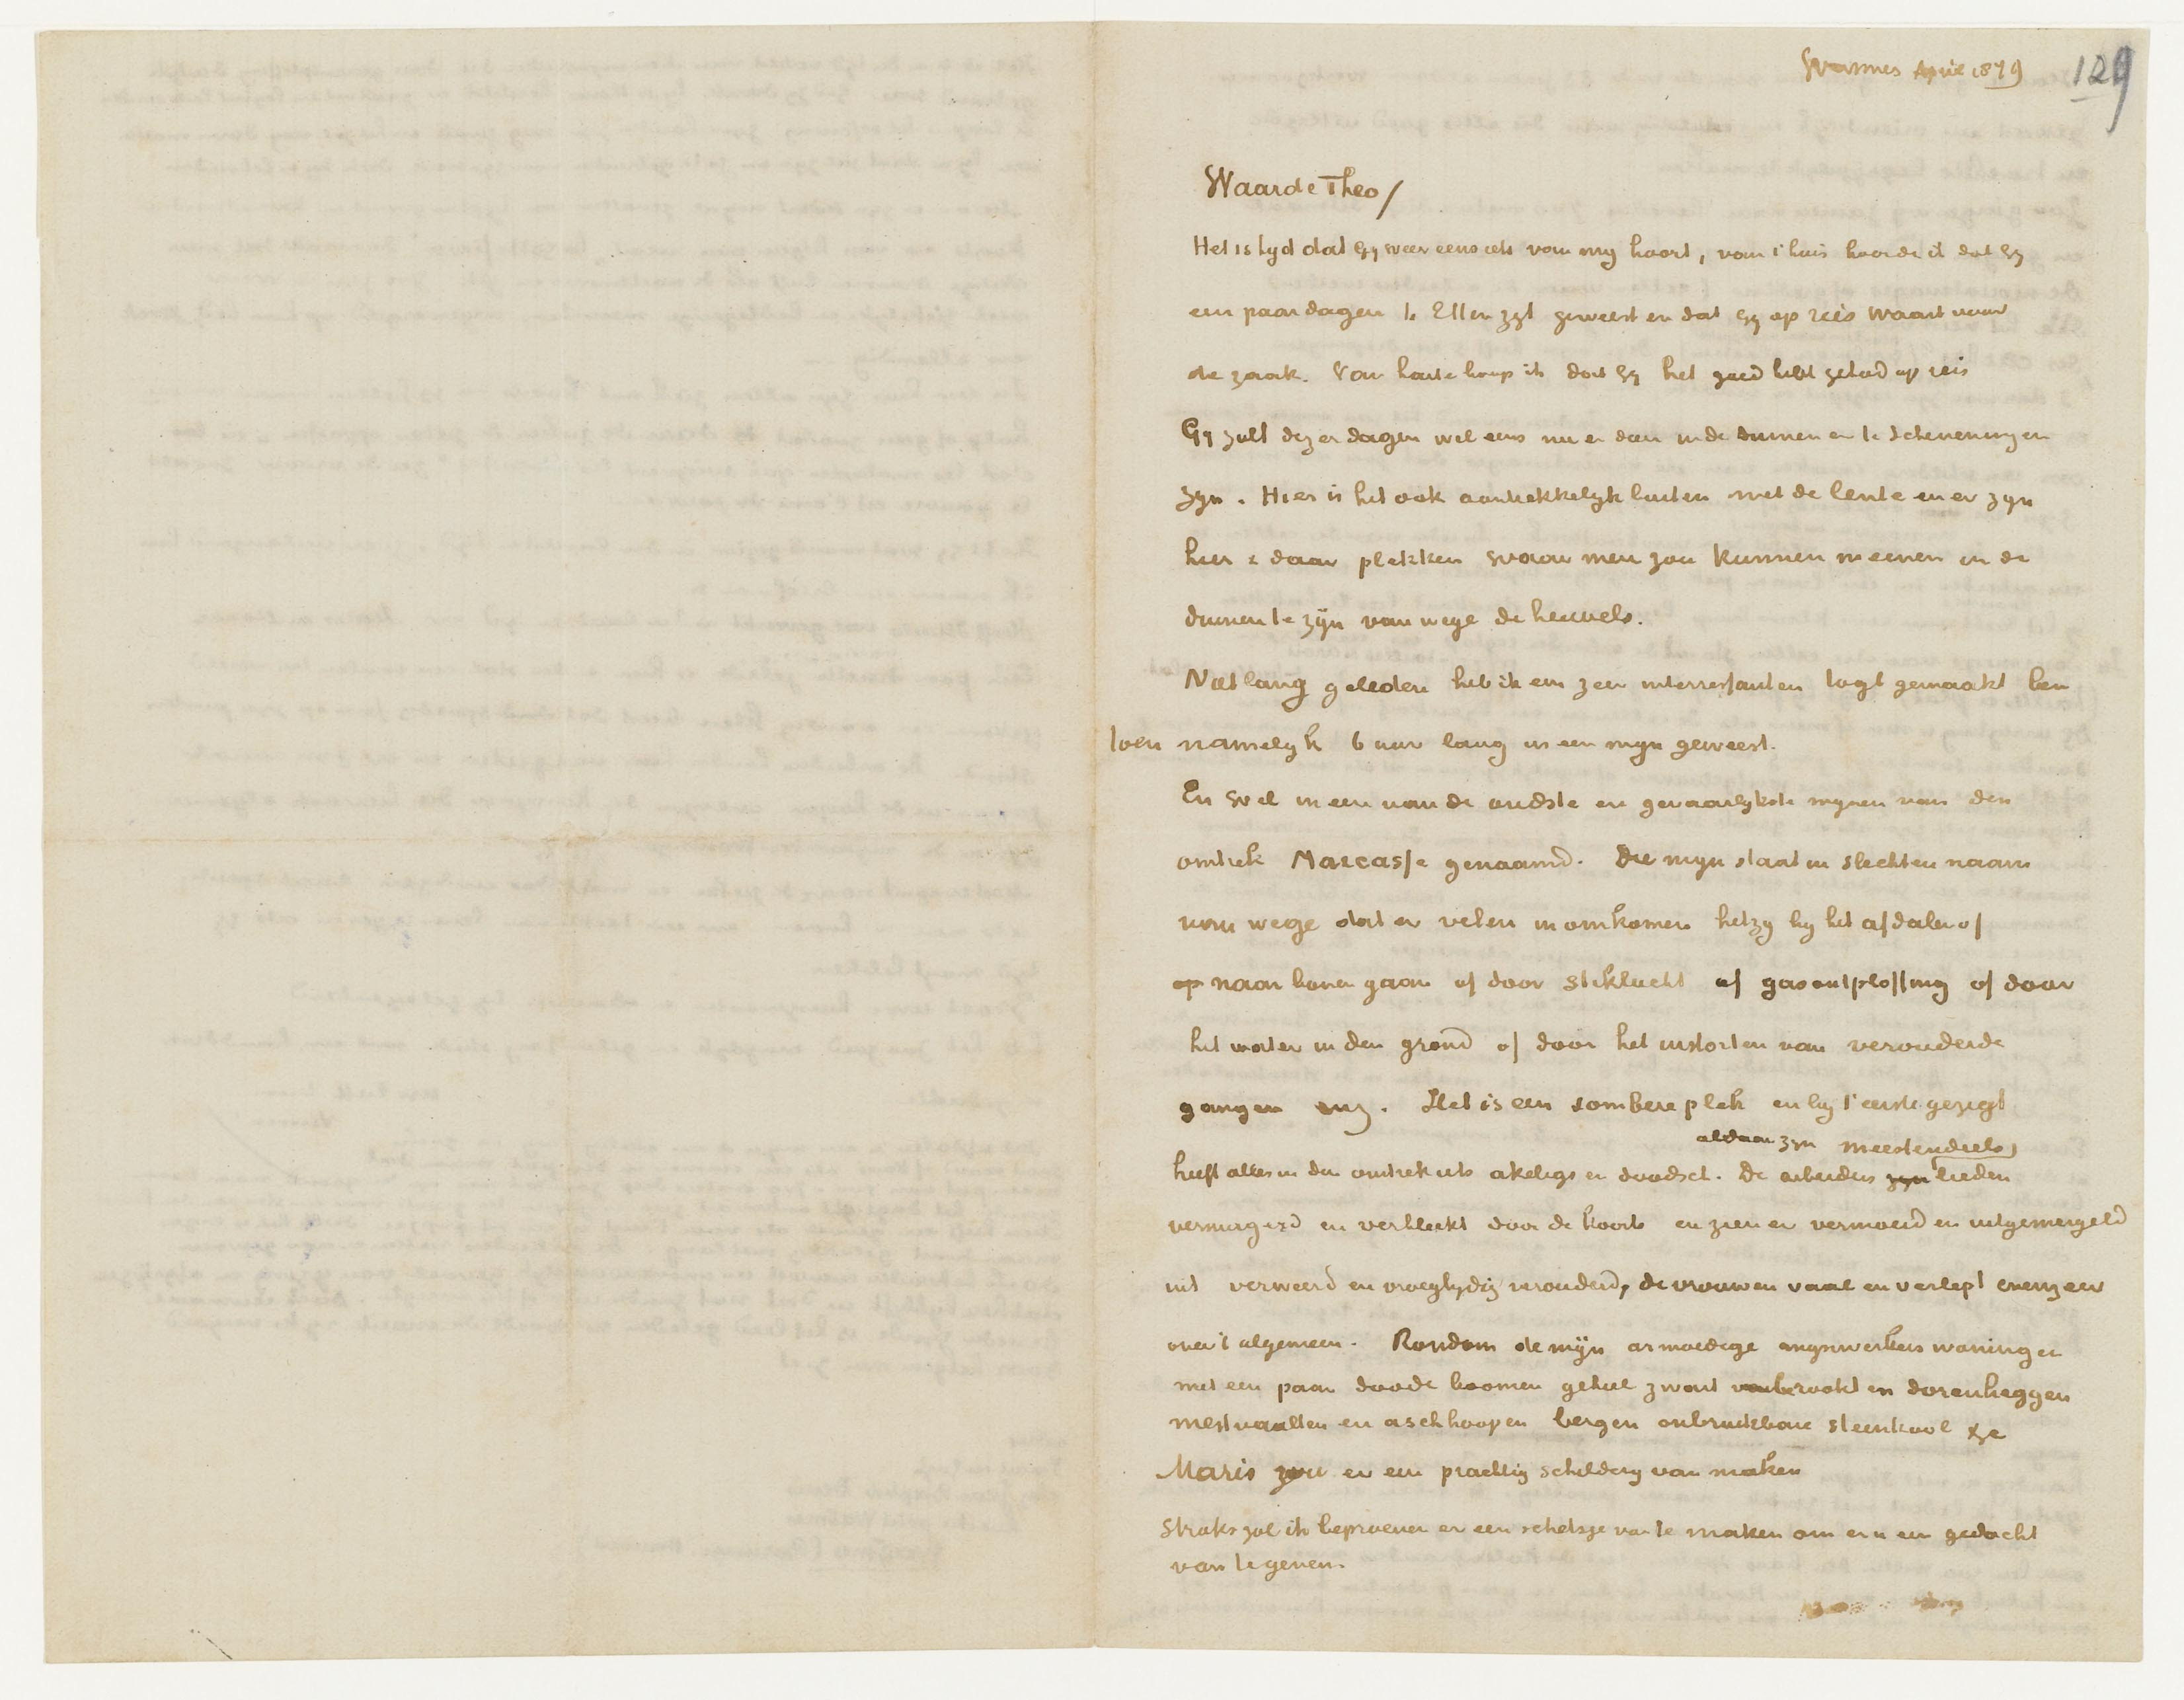 Wasmes April 1879
129
Waarde Theo/
Het is tyd dat gy weer eens iets van my hoort, van t'huis hoorde ik dat gy
een paar dagen te Etten zyt geweest en dat gy op reis waart voor
de zaak. Van harte hoop ik dat gy het goed hebt gehad op reis
Gy zult dezer dagen wel eens nu en dan in de duinen en te Scheveningen
zyn. Hier is het ook aantrekkelyk buiten met de lente en er zyn
hier & daar plekken waar men zou kunnen meenen in de
duinen te zÿn van wege de heuvels.
Niet lang geleden heb ik een zeer interressanten togt gemaakt ben
toen namelyk 6 uur lang in een myn geweest.
En wel in een van de oudste en gevaarlykste mynen van den
omtrek Marcasse genaamd. Die myn staat in slechten naam
van wege dat er velen in omkomen hetzy by het afdalen of
op naar boven gaan of door stiklucht of gasontploffing of door
het water in den grond of door het instorten van verouderde
gangen enz. Het is een sombere plek en by 't eerste gezigt
aldaar zyn meestendeels
heeft alles in den omtrek iets akeligs en doodsch. De arbeiders zyn lieden
vermagerd en verbleekt door de koorts en zien er vermoeid en uitgemergeld
uit verweerd en vroegtydig verouderd, de vrouwen vaal en verlept evenzeer
over 't algemeen. Rondom de mÿn armoedige mynwerkers woningen
met een paar doode boomen geheel zwart berookt en dorenheggen
mestvaalten en aschhoopen bergen onbruikbare steenkool &c
Maris zou er een prachtig schildery van maken
Straks zal ik beproeven er een schetsje van te maken om er u een gedacht
van te geven.